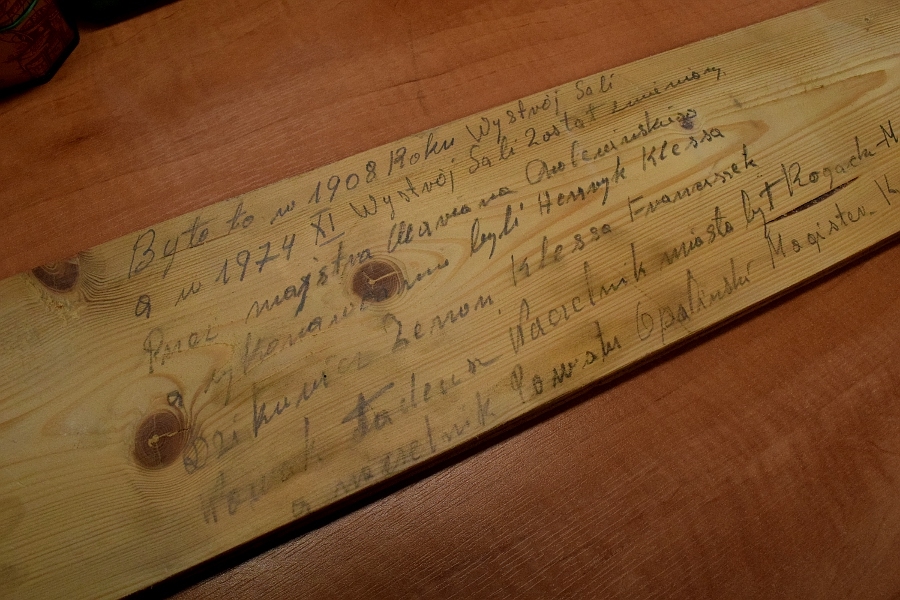 Było to w 1908 Roku Wystrój Sali
a w 1974 XI Wystrój Sali Został zmieniony
Przez majstra Mariana
a wykonawcami byli Henryk Klessa
Dzikowicz Zenon, Klessa Franciszek
Nowak Tadeusz Naczelnik miasta był Rogacki M
a naczelnik Powiatu Opaliński Magister K